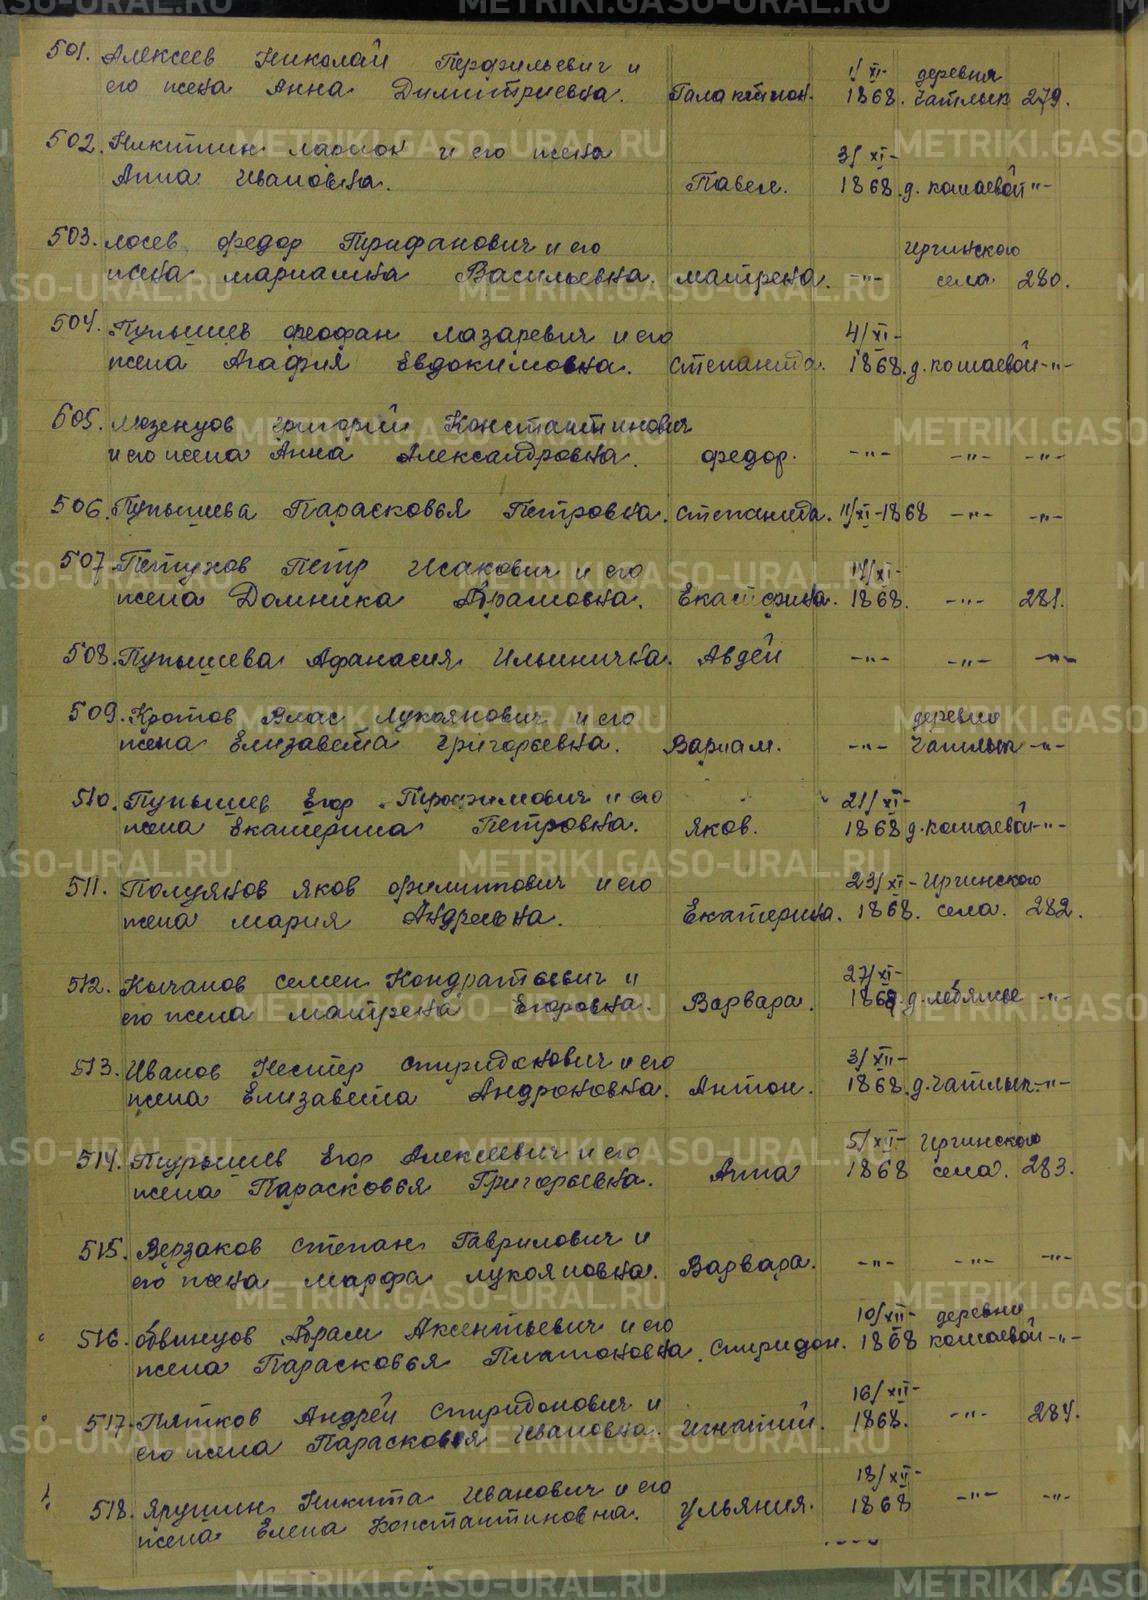 501. Алексеев Николай Перфильевич и
его жена Анна Димитриевна. Галактион. 1/XI- 1868. деревня Чатлык 279.
502. Никитин Ларион и его жена
Анна Ивановна. Павел. 3/XI- 1868. д. Кошаевой -"-
503. Лосев Федор Трифанович и его
жена Мариамна Васильевна. Матрена. -"- Иргинского села. 280.
504. Пупышев Феофан Лазаревич и его
жена Агафия Евдокимовна. Степанида. 4/XI- 1868. д. Кошаевой -"-
505. Мезенцов Григорий Константинович
и его жена Анна Александровна. Федор. -"- -"- -"-
506. Пупышева Парасковья Петровна. Степанида. 11/XI-1868 -"- -"-
507. Петухов Петр Исакович и его
жена Домника Абрамовна. Екатерина. 14/XI- 1868. -"- 281.
508. Пупышева Афанасия Ильинична. Авдей -"- -"- -"-
509. Кротов Влас Лукоянович и его
жена Елизавета Григорьевна. Варлам. -"- деревни Чатлык -"-
510. Пупышев Егор Трофимович и его
жена Екатерина Петровна. Яков. 21/XI- 1868 д. Кошаевой -"-
511. Полуянов Яков Филиппович и его
жена Мария Андреевна. Екатерина. 23/XI- 1868. Иргинского села. 282.
512. Кычанов Семен Кондратьевич и
его жена Матрена Егоровна. Варвара. 27/XI- 1868. д. Лебяжье -"-
513. Иванов Нестер Спиридонович и его
жена Елизавета Андроновна. Антон. 3/XII- 1868. д. Чатлык -"-
514. Пупышев Егор Алексеевич и его
жена Парасковья Григорьевна. Анна 5/XII- 1868 Иргинского села. 283.
515. Верзаков Степан Гаврилович и
его жена Марфа Лукояновна. Варвара. -"- -"- -"-
516. Обвинцов Абрам Аксентьевич и его
жена Парасковья Платоновна. Спиридон. 10/XII- 1868 деревни Кошаевой -"-
517. Пятков Андрей Спиридонович и
его жена Парасковья Ивановна. Игнатий. 16/XII- 1868. -"- 284.
518. Ярушин Никита Иванович и его
жена Елена Константиновна. Ульяния. 18/XII- 1868 -"- -"-
METRIKI.GASO-URAL.RU